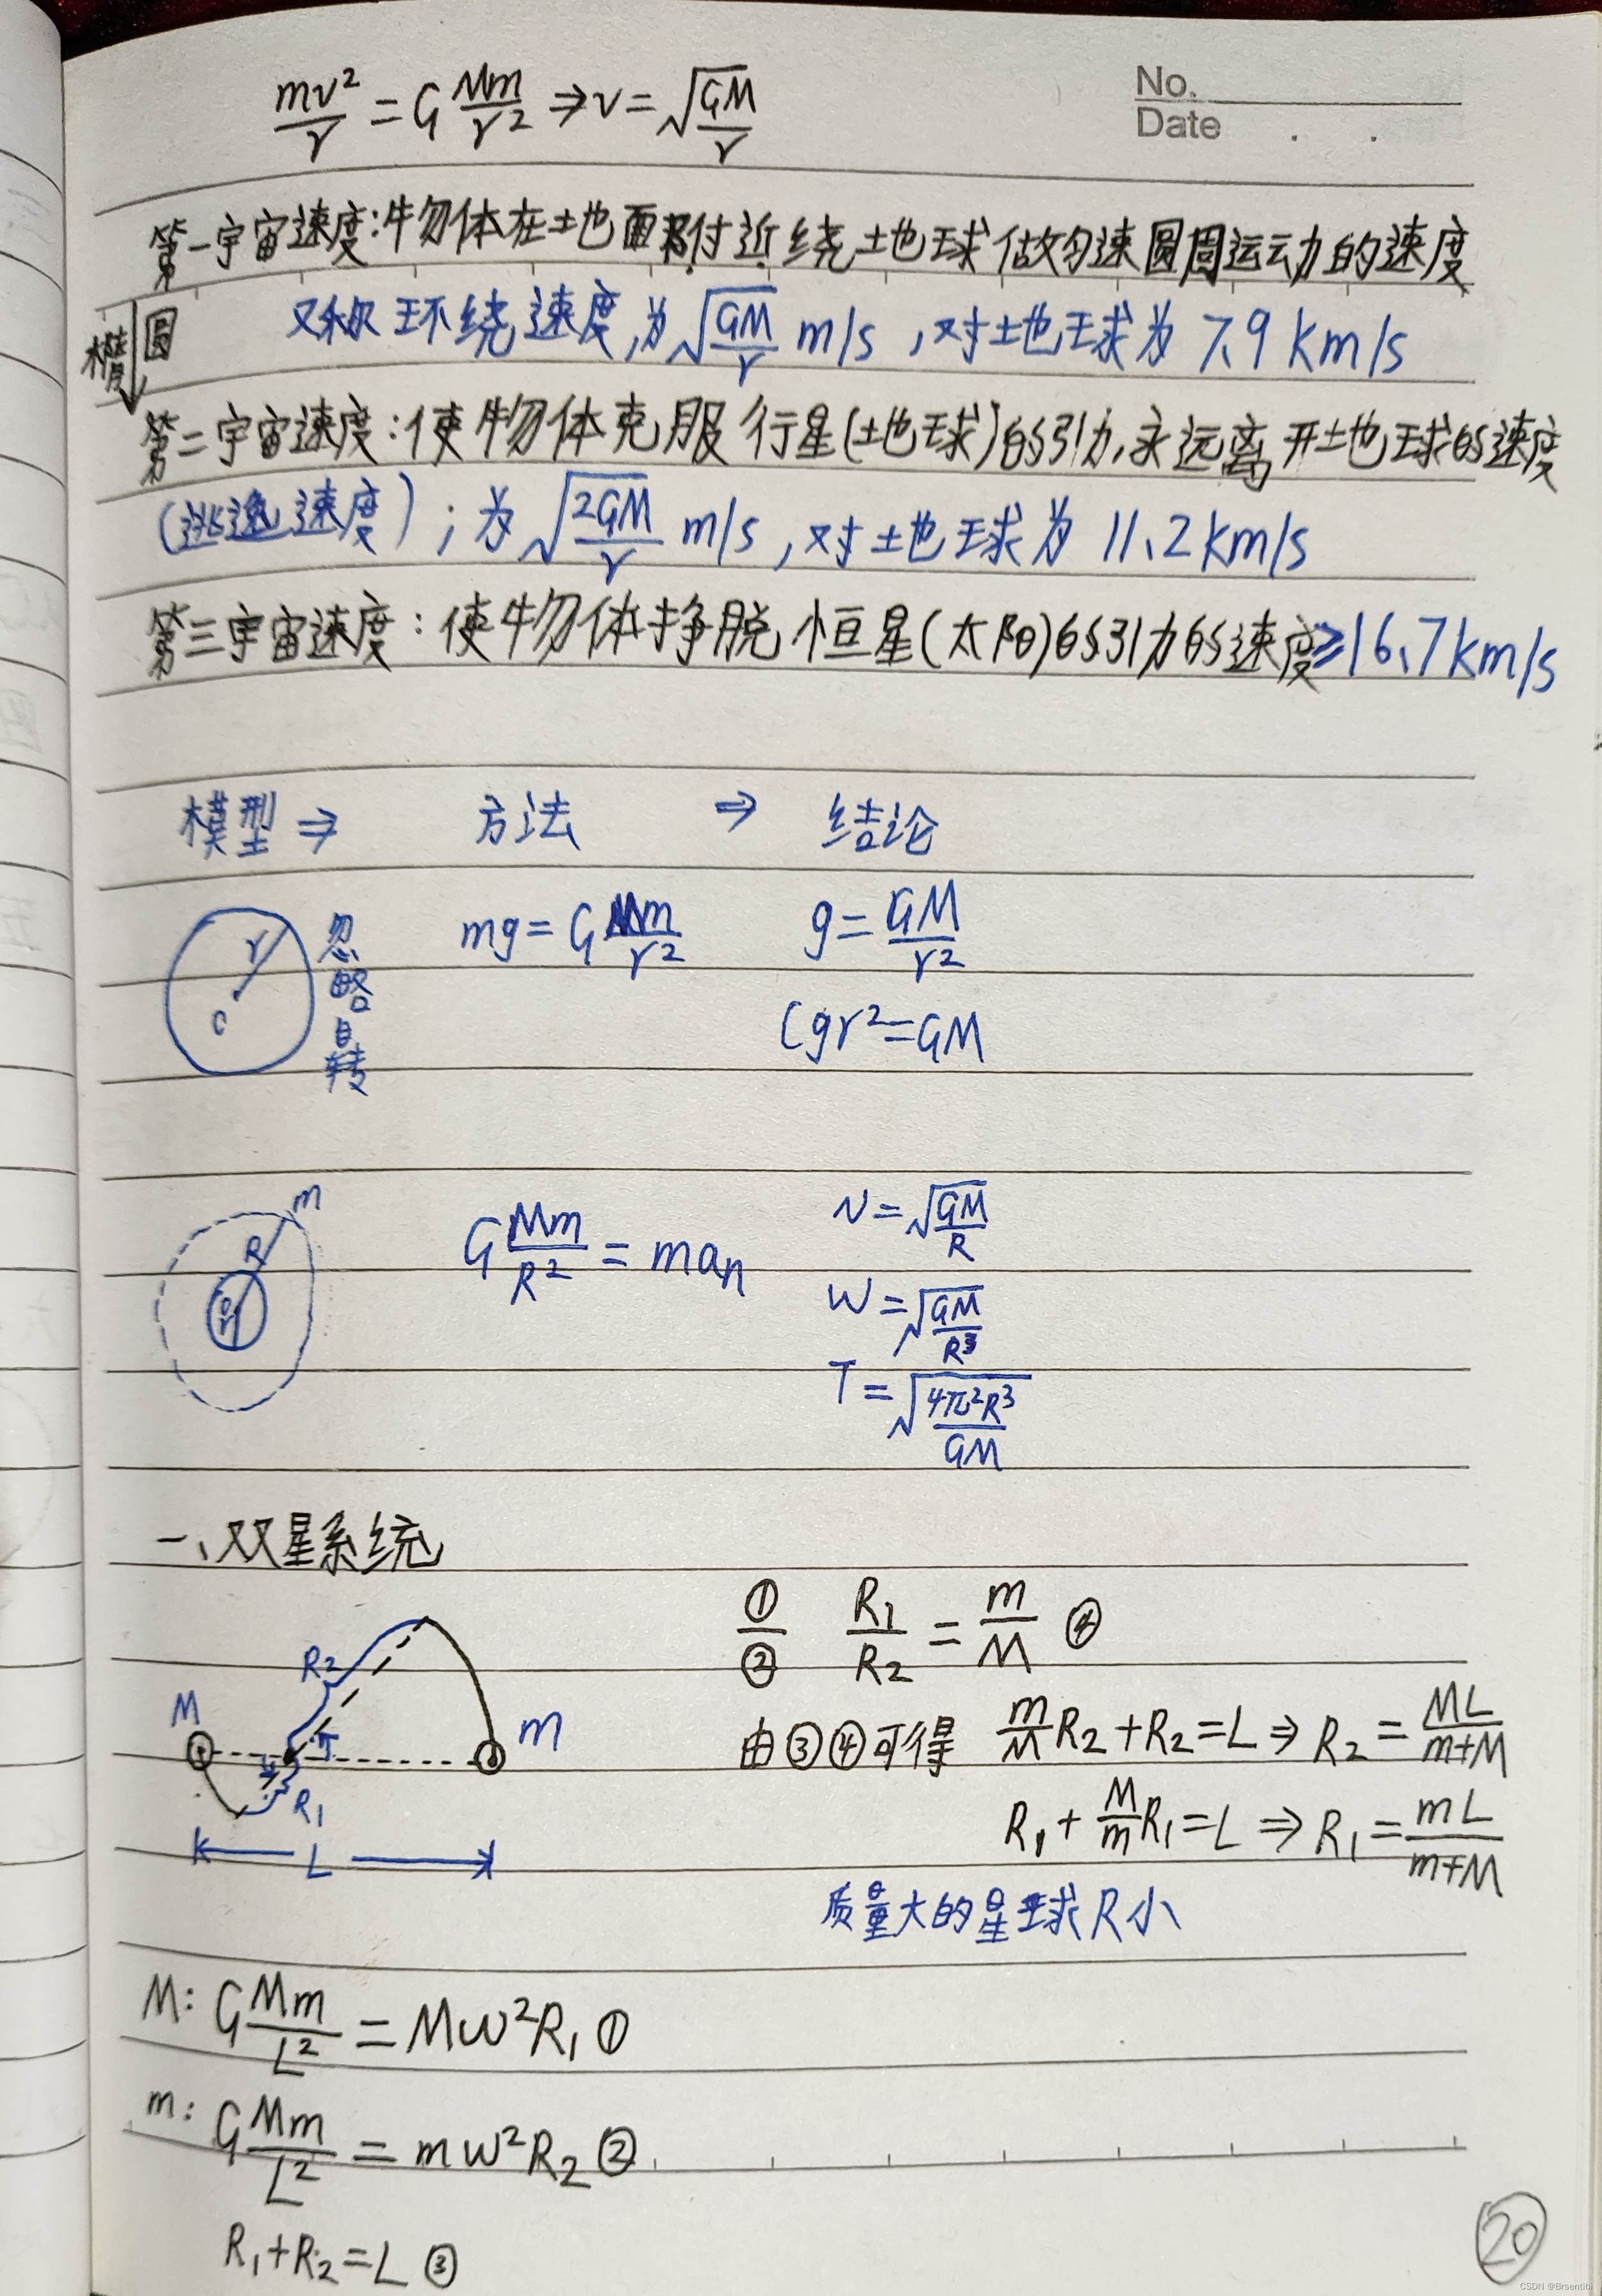 mv²/r = G Mm/r² ⇒ v = √(GM/r)
No.
Date . .
第一宇宙速度:物体在地面附近绕地球做匀速圆周运动的速度
圆
又称环绕速度,为√(GM/r) m/s,对地球为 7.9 km/s
椭
第二宇宙速度:使物体克服行星(地球)的引力,永远离开地球的速度
(逃逸速度);为 √(2GM/r) m/s,对地球为 11.2 km/s
第三宇宙速度:使物体挣脱恒星(太阳)的引力的速度≥16.7km/s
模型 ⇒ 方法 ⇒ 结论
r
忽略自转
mg = G Mm/r²
g = GM/r²
(gr²=GM
m
R
r
G Mm/R² = man
v = √(GM/R)
w = √(GM/R³)
T = √(4π²R³/GM)
一、双星系统
①/② R₁/R₂ = m/M ④
R₂
M
m
R₁
L
由③④可得 m/M R₂ + R₂ = L ⇒ R₂ = ML/(m+M)
R₁ + M/m R₁ = L ⇒ R₁ = mL/(m+M)
质量大的星球R小
M: G Mm/L² = Mw²R₁ ①
m: G Mm/L² = mw²R₂ ②
R₁+R₂=L ③
20
CSDN @Brsentibi